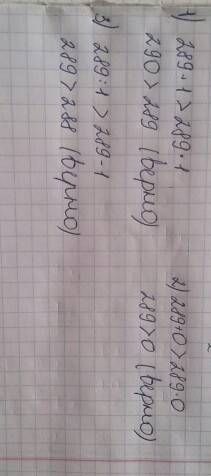 1) 289+1>289·1
290>289 (верно)
2) 289+0>289·0
289>0 (верно)
3) 289:1>289-1
289>288 (верно)